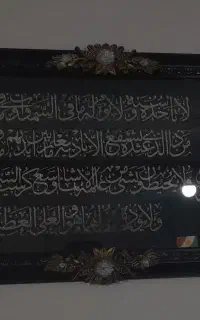 لا تأخذه سنة ولا نوم له ما في السموات وما في
من ذا الذي يشفع عنده إلا بإذنه يعلم ما بين أيديهم
ولا يحيطون بشيء من علمه إلا بما شاء وسع كرسيه
ولا يؤده حفظهما وهو العلي العظيم